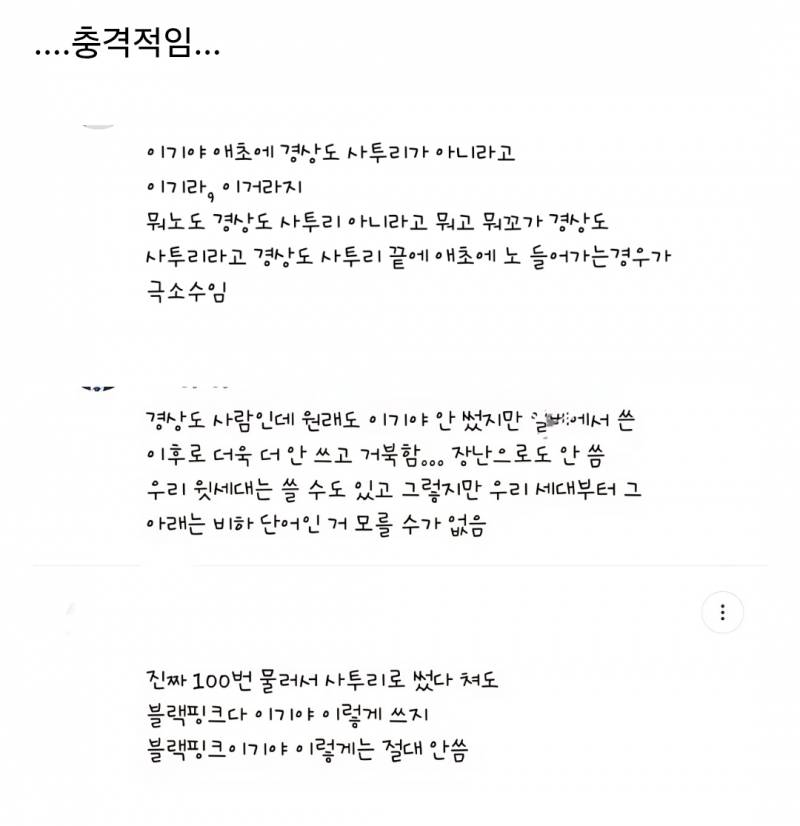 ....충격적임...
이기야 애초에 경상도 사투리가 아니라고
이기라, 이거라지
뭐노도 경상도 사투리 아니라고 뭐고 뭐꼬가 경상도
사투리라고 경상도 사투리 끝에 애초에 노 들어가는경우가
극소수임
경상도 사람인데 원래도 이기야 안 썼지만 에서 쓴
이후로 더욱 더 안 쓰고 거북함... 장난으로도 안 씀
우리 윗세대는 쓸 수도 있고 그렇지만 우리 세대부터 그
아래는 비하 단어인 거 모를 수가 없음
진짜 100번 물러서 사투리로 썼다 쳐도
블랙핑크다 이기야 이렇게 쓰지
블랙핑크이기야 이렇게는 절대 안씀